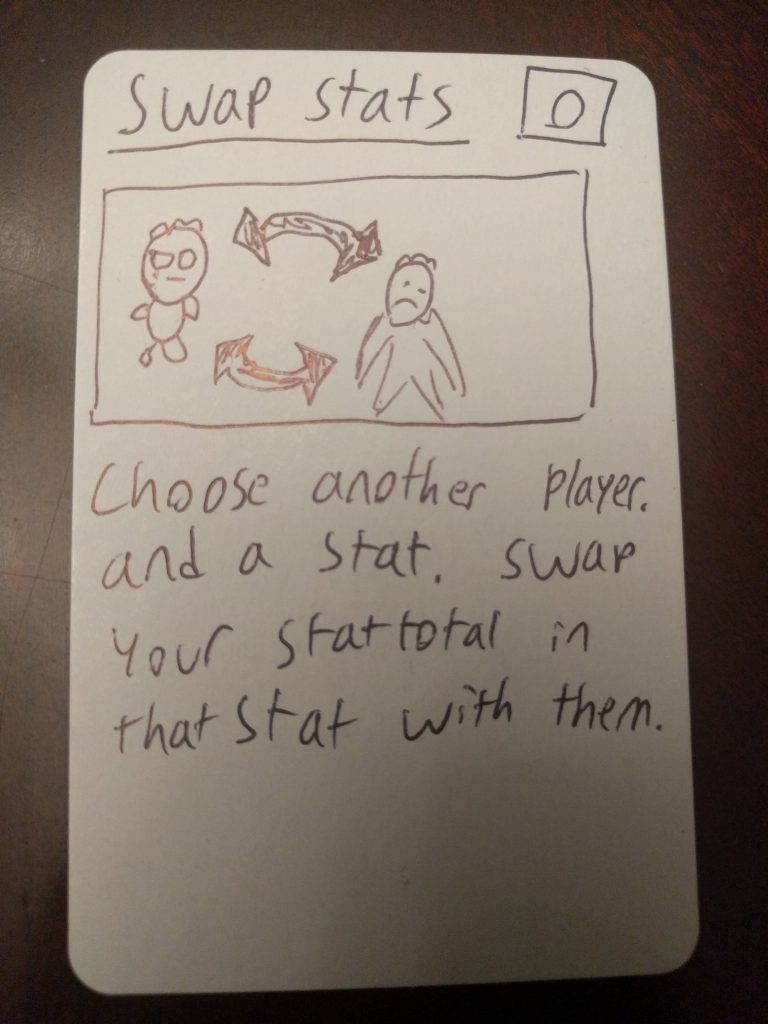 Swap stats
0
Choose another player.
and a stat. Swap
your stat total in
that stat with them.